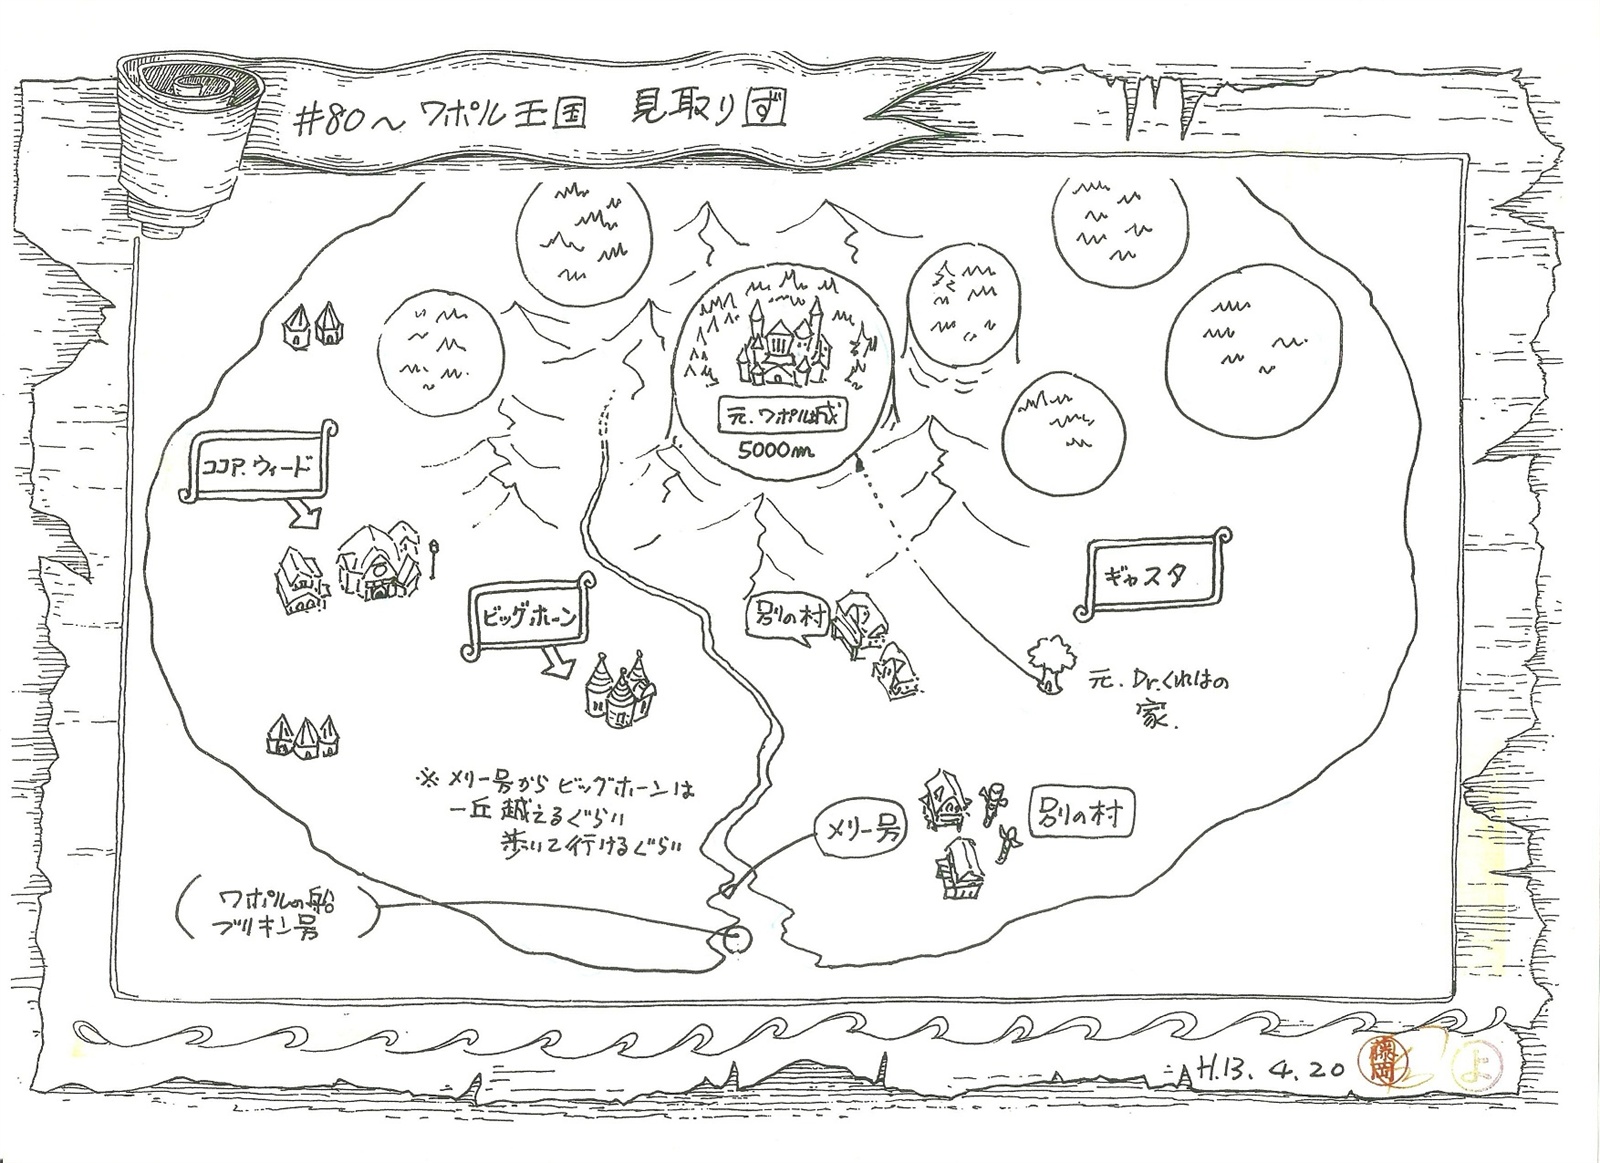 #80～ ワポル王国 見取り図
元.ワポル城
5000m
ココア.ウィード
ビッグホーン
別の村
ギャスタ
元.Dr.くれはの
家.
※メリー号からビッグホーンは
一丘越えるぐらい
歩いて行けるぐらい
メリー号
別の村
(ワポルの船
ブリキン号)
H.13. 4. 20
藤岡
よ